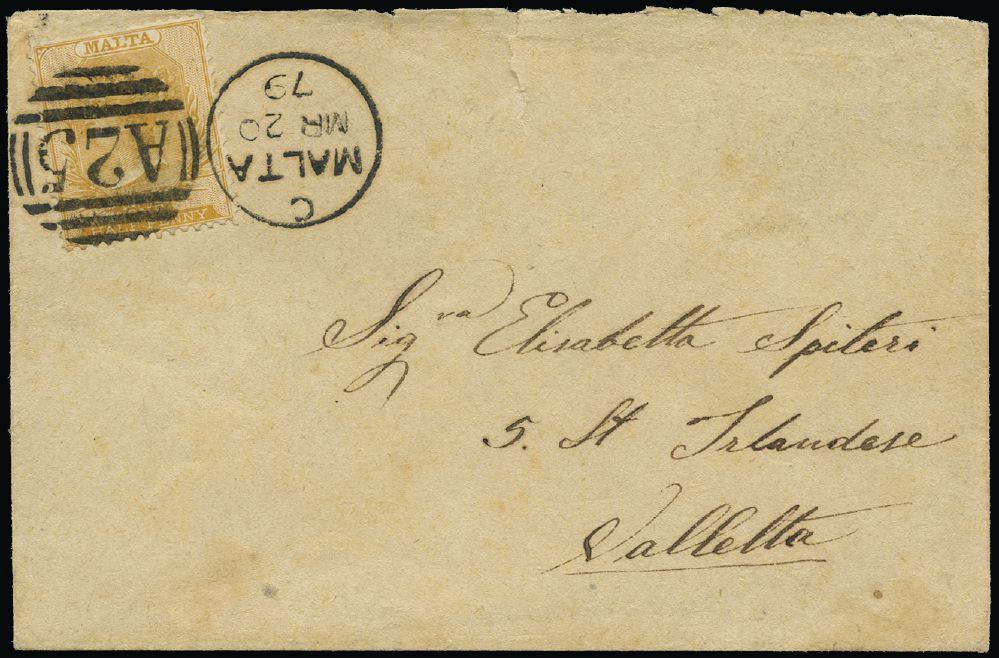 MALTA
HALF PENNY
A25
C
MALTA
MR 20
79
Sigra Elisabetta Spiteri
5. St Irlandese
Valletta